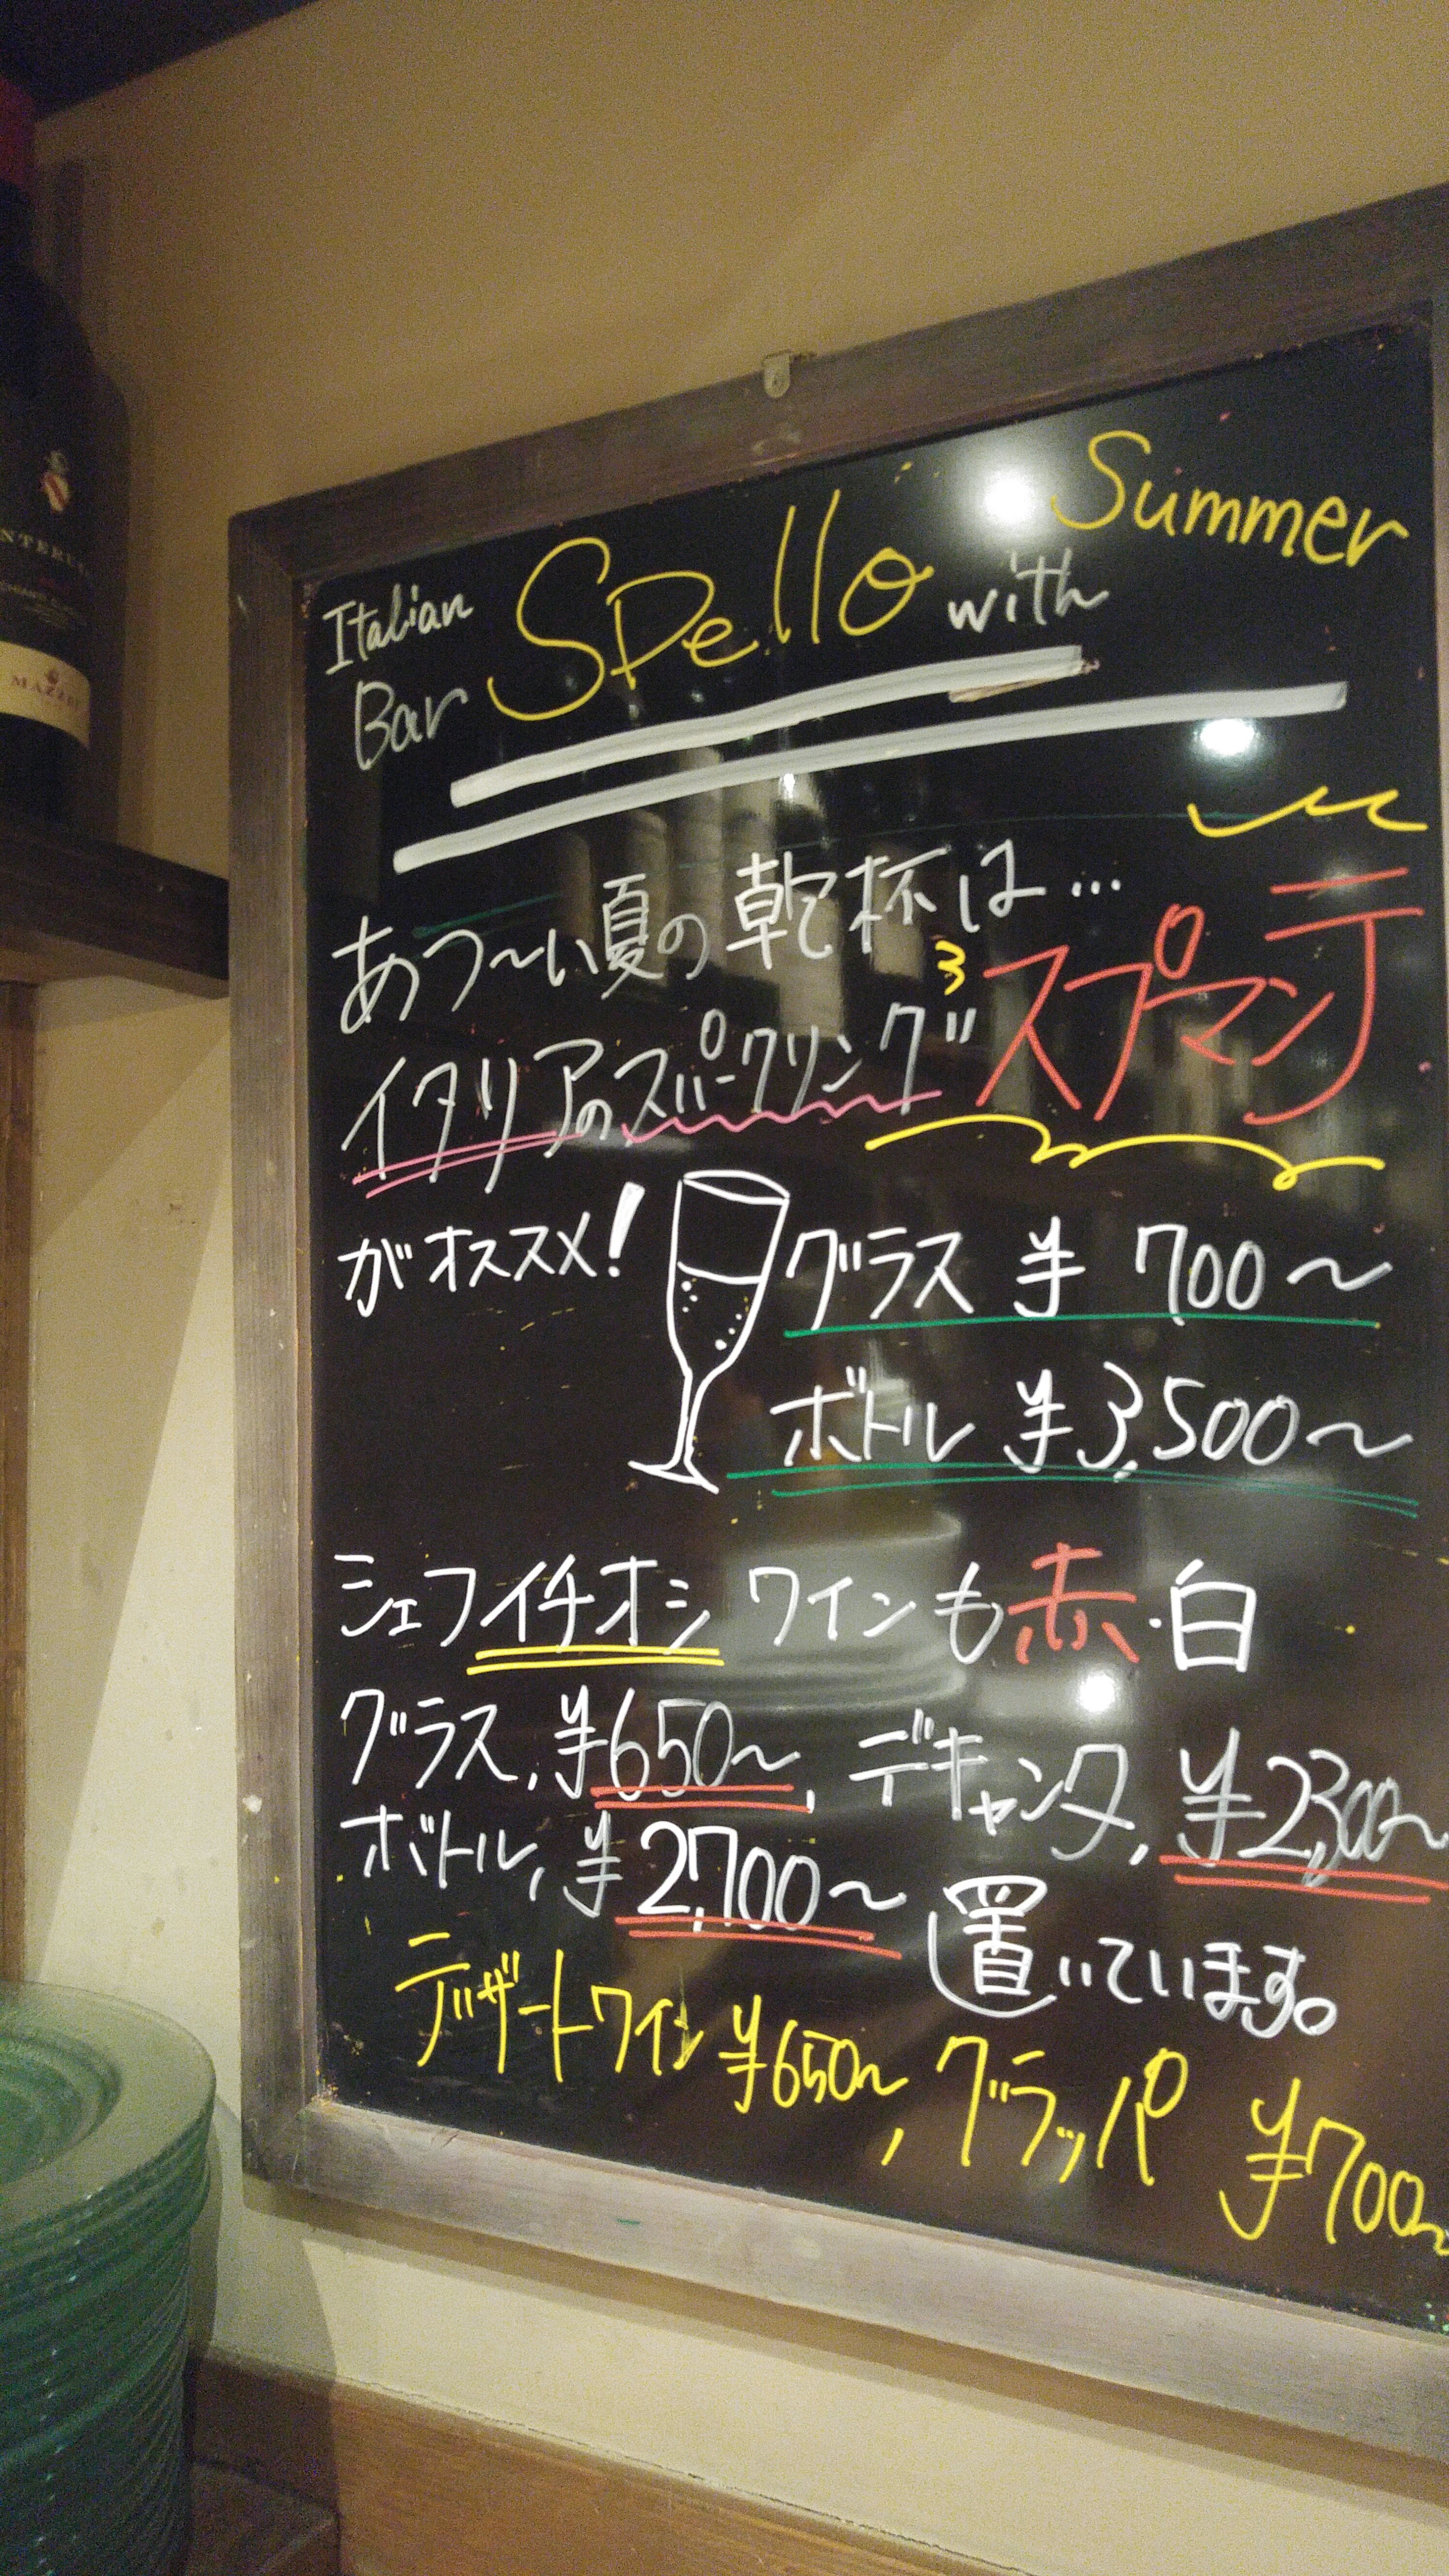 Italian Bar Spello with Summer
あつ〜い夏の乾杯は…
イタリアのスパークリング スプマンテ
がオススメ!
グラス ¥700〜
ボトル ¥3,500〜
シェフイチオシ ワインも赤・白
グラス, ¥650〜, デキャンタ, ¥2,300〜
ボトル, ¥2,700〜 置いています。
デザートワイン ¥650〜, グラッパ ¥700〜